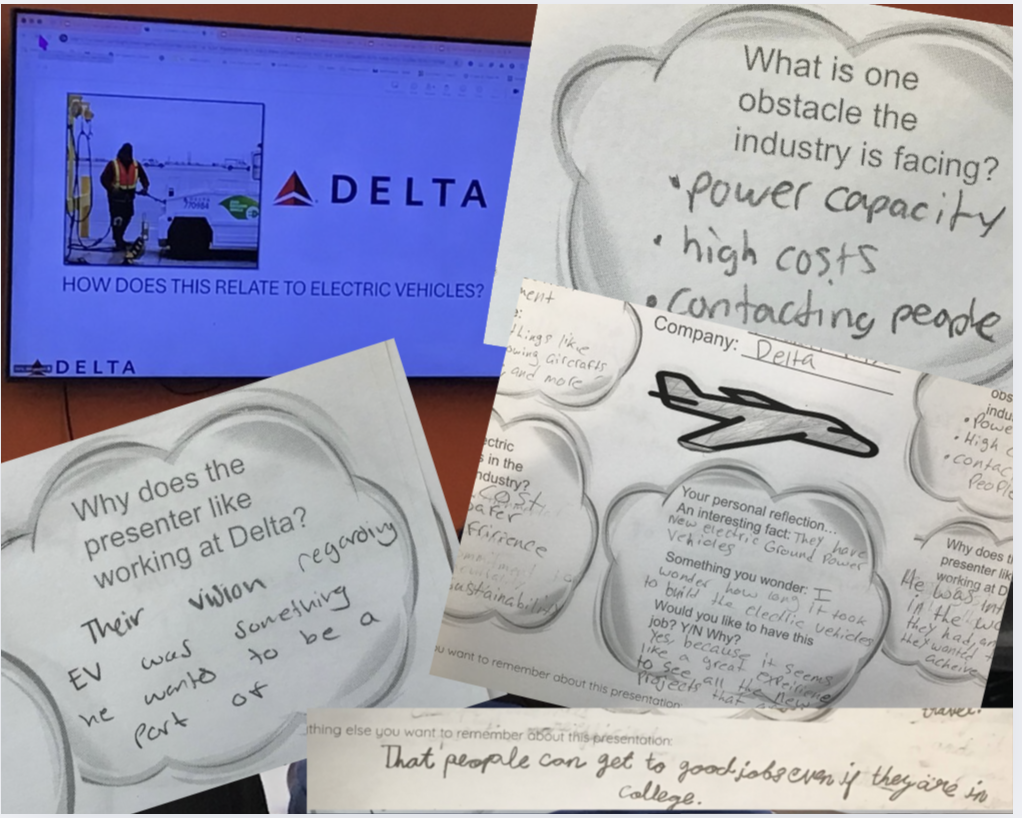 DELTA
HOW DOES THIS RELATE TO ELECTRIC VEHICLES?
DELTA
What is one
obstacle the
industry is facing?
• power capacity
• high costs
• contacting people
Why does the
presenter like
working at Delta?
Their vision regarding
EV was something
he wants to be a
part of
things like
Aircrafts
and more
Company: Delta
s in the
cost
Your personal reflection...
An interesting fact: They have
new electric Ground Power
Vehicles
Something you wonder: I
wonder how long it took
to build the electric vehicles
Would you like to have this
job? Y/N Why?
Yes, because it seems
like a great experience
to see all the new
projects that
• High
People
Why does
working at
He was
in the
they had, an
they wanted
acheive
want to remember about this presentation
travel.
thing else you want to remember about this presentation:
That people can get to good jobs even if they are in
college.